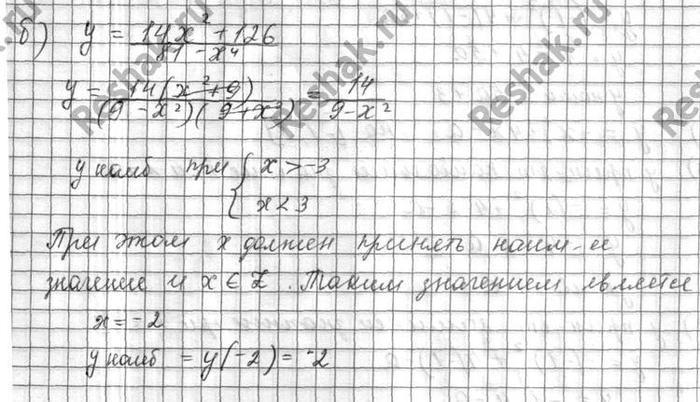 б) y = 14x² + 126 / 81 - x⁴
y = 14(x² + 9) / (9 - x²)(9 + x²) = 14 / 9 - x²
y наиб при { x > -3
x < 3
При этом x должен принять наим-ее
значение и x ∈ Z. Таким значением является
x = -2
y наиб = y(-2) = -2
Reshak.ru
Reshak.ru
Reshak.ru